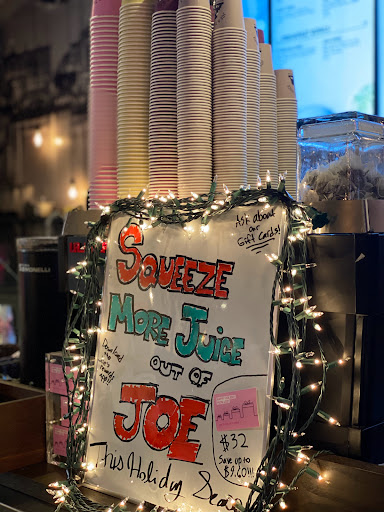 Ask about
our
Gift Cards!
SQUEEZE
MORE JUICE
OUT OF
JOE
$32
Save up
to
$9.60!!!
This Holiday